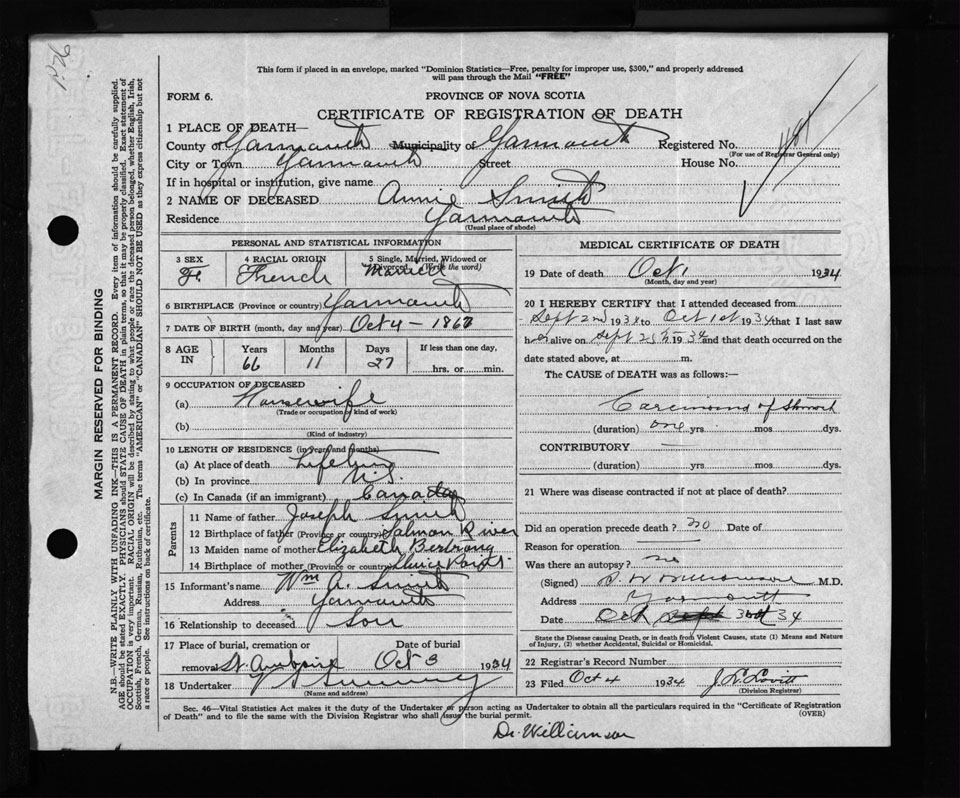 This form if placed in an envelope, marked "Dominion Statistics—Free, penalty for improper use, $300," and properly addressed
will pass through the Mail "FREE"
FORM 6. PROVINCE OF NOVA SCOTIA
CERTIFICATE OF REGISTRATION OF DEATH
1 PLACE OF DEATH—
County of Yarmouth Municipality of Yarmouth Registered No.
(For use of Registrar General only)
City or Town Yarmouth Street House No.
If in hospital or institution, give name
2 NAME OF DECEASED Annie Smith
Residence Yarmouth
(Usual place of abode)
MARGIN RESERVED FOR BINDING
N.B.—WRITE PLAINLY WITH UNFADING INK—THIS IS A PERMANENT RECORD. Every item of information should be carefully supplied.
AGE should be stated EXACTLY. PHYSICIANS should STATE CAUSE OF DEATH in plain terms, so that it may be properly classified. Exact statement of
OCCUPATION is very important. RACIAL ORIGIN will be described by stating to what people or race the deceased person belonged, whether English, Irish,
Scottish, French, German, Russian, Ruthenian, etc. The terms "AMERICAN" or "CANADIAN" SHOULD NOT BE USED as they express citizenship but not
a race or people. See instructions on back of certificate.
PERSONAL AND STATISTICAL INFORMATION
3 SEX 4 RACIAL ORIGIN 5 Single, Married, Widowed or
Divorced (Write the word)
F. French Married
6 BIRTHPLACE (Province or country) Yarmouth
7 DATE OF BIRTH (month, day and year) Oct 4 - 1867
8 AGE IN Years Months Days If less than one day,
66 11 27 hrs. or min.
9 OCCUPATION OF DECEASED
(a) Housewife
(Trade or occupation or kind of work)
(b)
(Kind of industry)
10 LENGTH OF RESIDENCE (in years and months)
(a) At place of death Life time
(b) In province N.S.
(c) In Canada (if an immigrant) Canada
Parents
11 Name of father Joseph Smith
12 Birthplace of father (Province or country) Salmon River
13 Maiden name of mother Elizabeth Bertrang
14 Birthplace of mother (Province or country) Sluice Point
15 Informant's name Wm A. Smith
Address Yarmouth
16 Relationship to deceased Son
17 Place of burial, cremation or Date of burial
removal St. Ambroise Oct 3 1934
18 Undertaker V S Sweeney
(Name and address)
MEDICAL CERTIFICATE OF DEATH
19 Date of death Oct 1 1934
(Month, day and year)
20 I HEREBY CERTIFY that I attended deceased from
Sept 2nd 193 to Oct 1st 1934 that I last saw
her alive on Sept 25th 1934 and that death occurred on the
date stated above, at m.
The CAUSE of DEATH was as follows:—
Carcinoma of Stomach
(duration) one yrs. mos. dys.
CONTRIBUTORY
(duration) yrs. mos. dys.
21 Where was disease contracted if not at place of death?
Did an operation precede death? no Date of
Reason for operation
Was there an autopsy? no
(Signed) Williamson M.D.
Address Yarmouth
Date Oct 34
State the Disease causing Death, or in death from Violent Causes, state (1) Means and Nature
of Injury, (2) whether Accidental, Suicidal or Homicidal.
22 Registrar's Record Number
23 Filed Oct 4 1934 J L Lovitt
(Division Registrar)
Sec. 46—Vital Statistics Act makes it the duty of the Undertaker or person acting as Undertaker to obtain all the particulars required in the "Certificate of Registration
of Death" and to file the same with the Division Registrar who shall issue the burial permit. (OVER)
Dr. Williamson